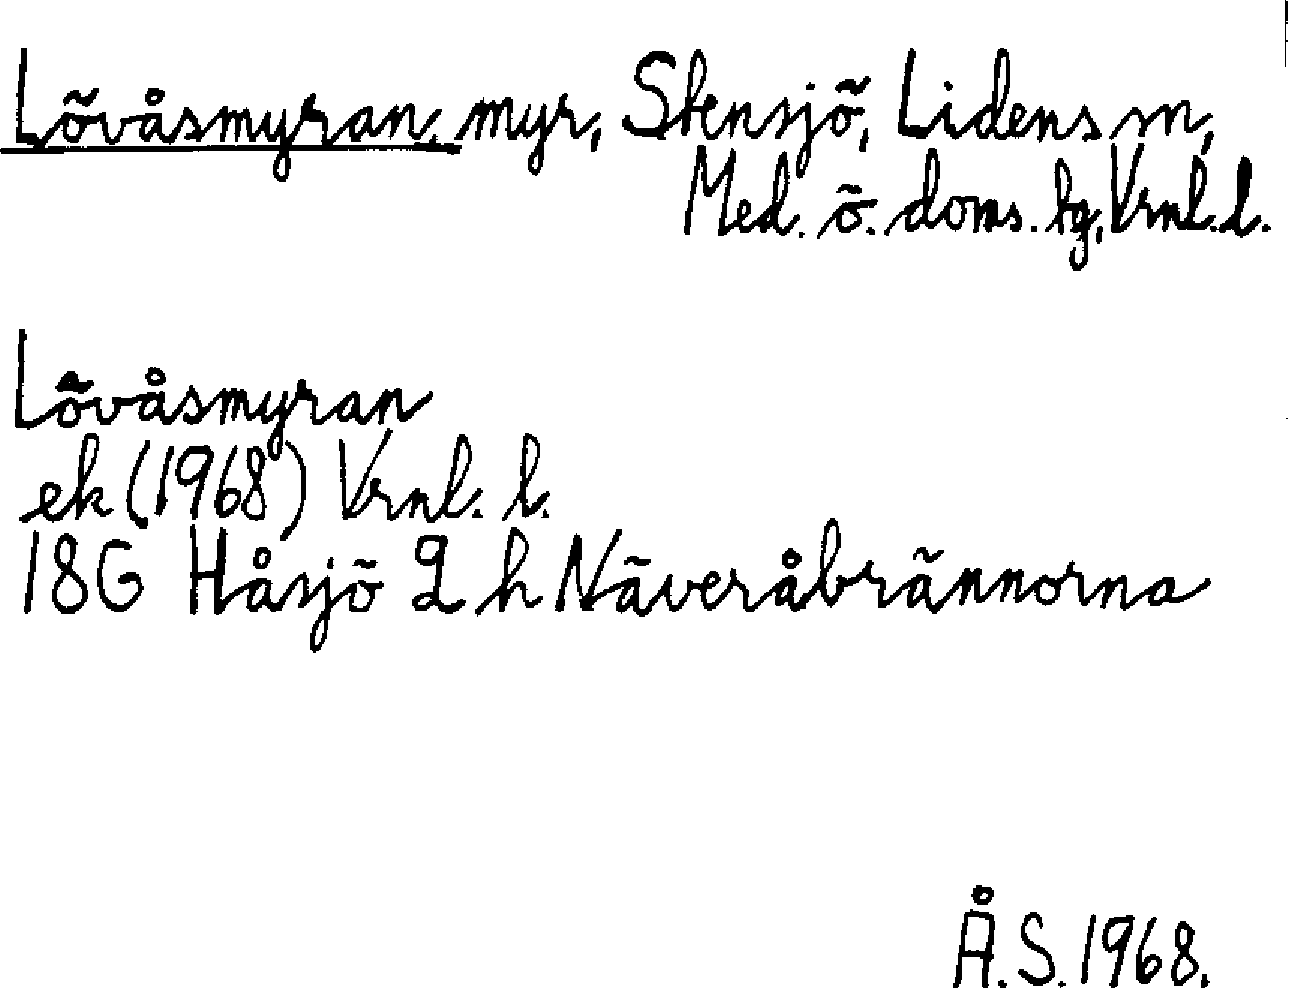 Lövåsmyran, myr, Stensjö, Lidens sn,
Med. ö. doms. lg, Vrnl. l.
Lövåsmyran
ek (1968) Vrnl. l.
18G Håsjö 2 h Näveråbrännorna
Å.S. 1968.